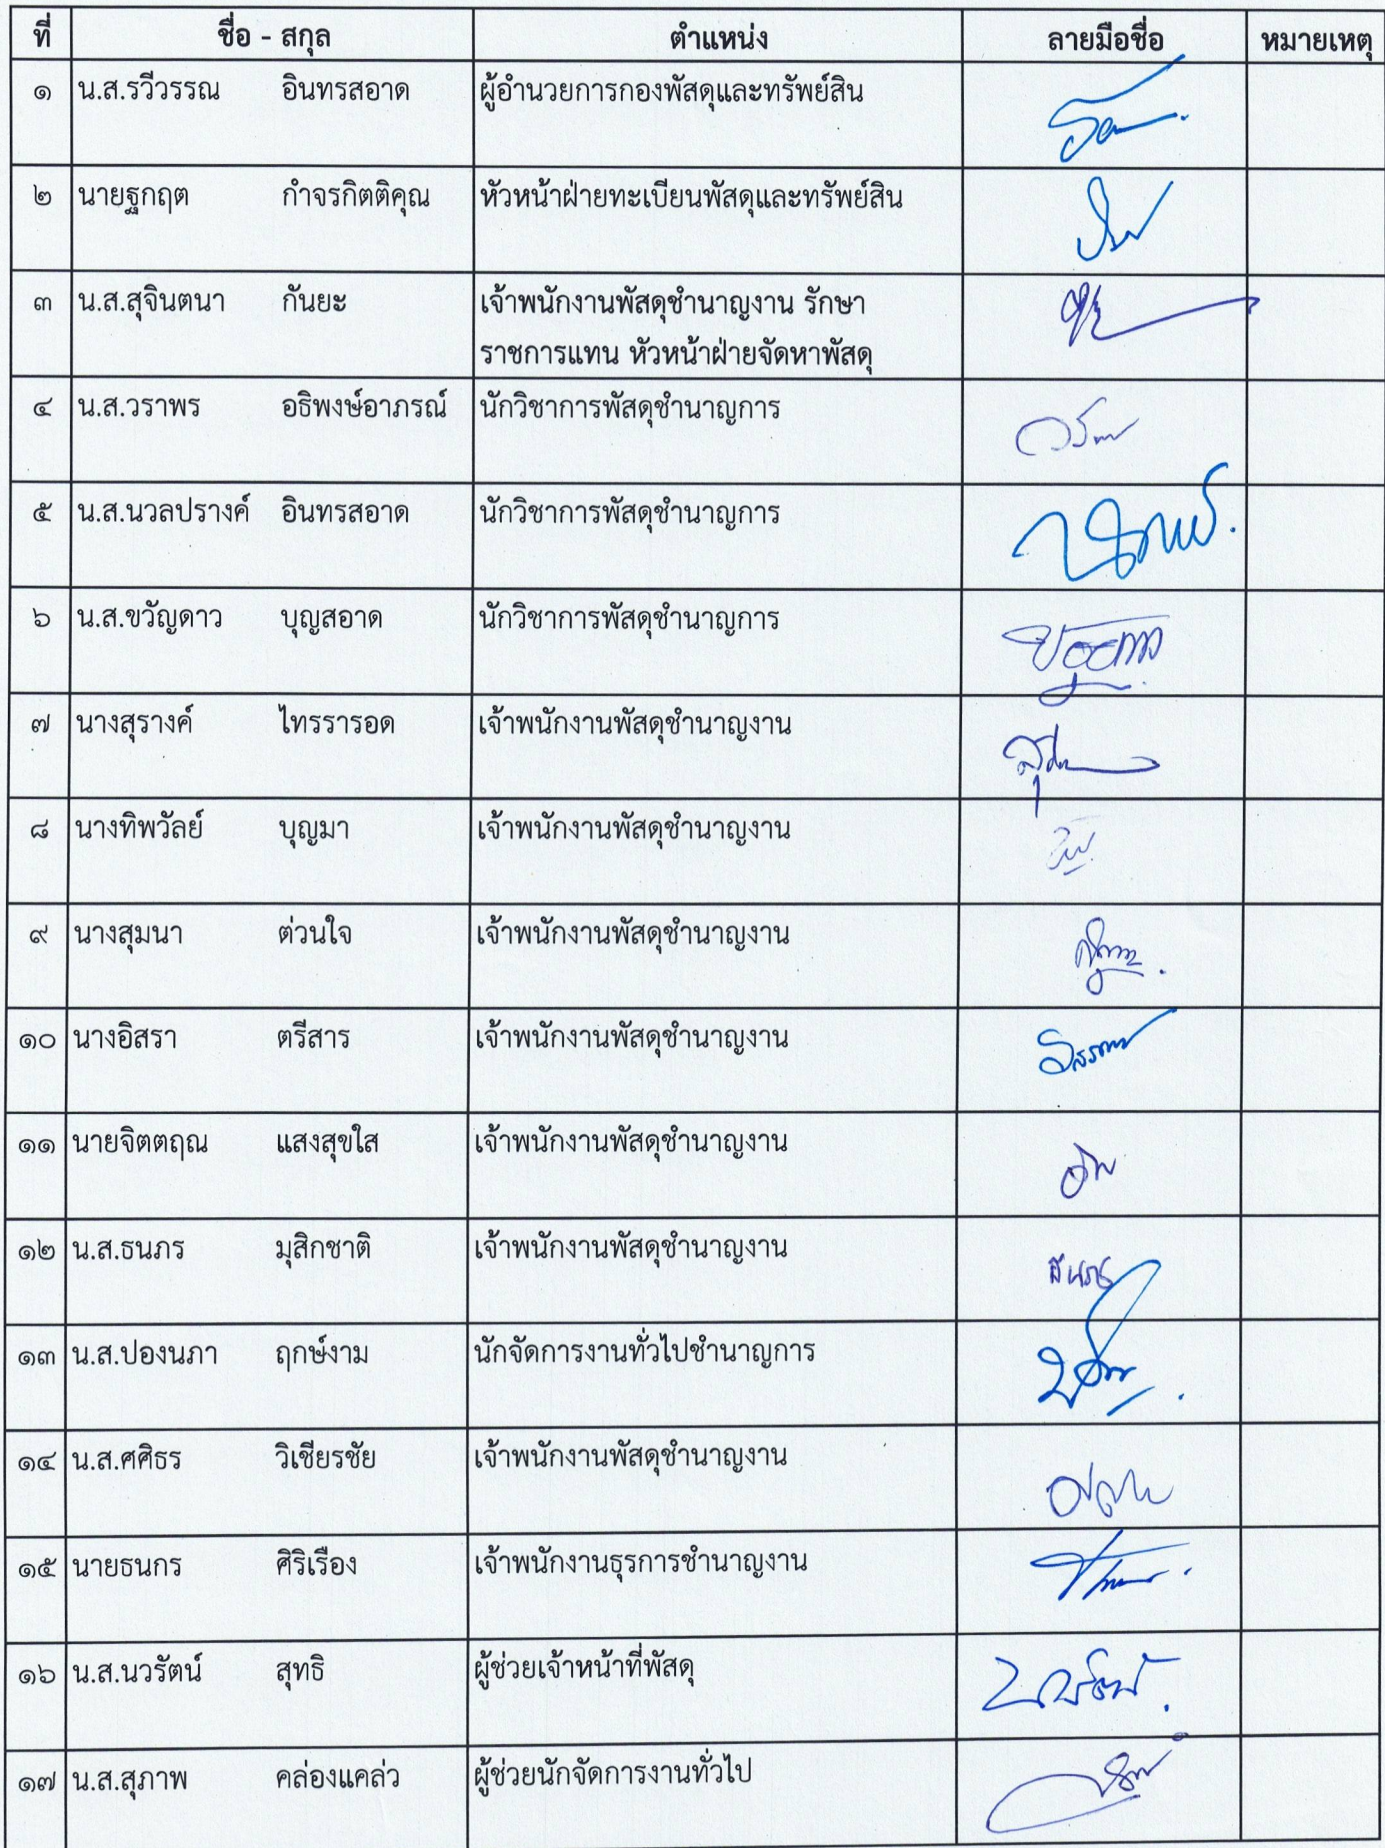 ที่ ชื่อ - สกุล ตำแหน่ง ลายมือชื่อ หมายเหตุ
๑ น.ส.รวีวรรณ อินทรสอาด ผู้อำนวยการกองพัสดุและทรัพย์สิน
๒ นายฐกฤต กำจรกิตติคุณ หัวหน้าฝ่ายทะเบียนพัสดุและทรัพย์สิน
๓ น.ส.สุจินตนา กันยะ เจ้าพนักงานพัสดุชำนาญงาน รักษา
ราชการแทน หัวหน้าฝ่ายจัดหาพัสดุ
๔ น.ส.วราพร อธิพงษ์อาภรณ์ นักวิชาการพัสดุชำนาญการ
๕ น.ส.นวลปรางค์ อินทรสอาด นักวิชาการพัสดุชำนาญการ
๖ น.ส.ขวัญดาว บุญสอาด นักวิชาการพัสดุชำนาญการ
๗ นางสุรางค์ ไทรรารอด เจ้าพนักงานพัสดุชำนาญงาน
๘ นางทิพวัลย์ บุญมา เจ้าพนักงานพัสดุชำนาญงาน
๙ นางสุมนา ต่วนใจ เจ้าพนักงานพัสดุชำนาญงาน
๑๐ นางอิสรา ตรีสาร เจ้าพนักงานพัสดุชำนาญงาน
๑๑ นายจิตตฤณ แสงสุขใส เจ้าพนักงานพัสดุชำนาญงาน
๑๒ น.ส.ธนภร มุสิกชาติ เจ้าพนักงานพัสดุชำนาญงาน ธนภร
๑๓ น.ส.ปองนภา ฤกษ์งาม นักจัดการงานทั่วไปชำนาญการ
๑๔ น.ส.ศศิธร วิเชียรชัย เจ้าพนักงานพัสดุชำนาญงาน
๑๕ นายธนกร ศิริเรือง เจ้าพนักงานธุรการชำนาญงาน
๑๖ น.ส.นวรัตน์ สุทธิ ผู้ช่วยเจ้าหน้าที่พัสดุ
๑๗ น.ส.สุภาพ คล่องแคล่ว ผู้ช่วยนักจัดการงานทั่วไป